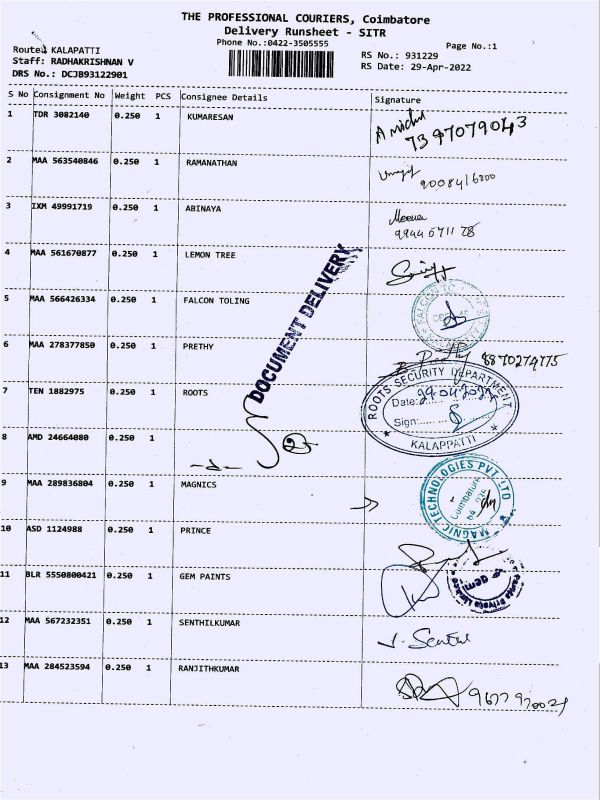 THE PROFESSIONAL COURIERS, Coimbatore
Delivery Runsheet - SITR
Phone No.:0422-3505555
Page No.:1
Route: KALAPATTI
Staff: RADHAKRISHNAN V
DRS No.: DCJB93122901
RS No.: 931229
RS Date: 29-Apr-2022
S No Consignment No Weight PCS Consignee Details Signature
1 TDR 3082140 0.250 1 KUMARESAN
7397079043
2 MAA 563540846 0.250 1 RAMANATHAN
9008416800
3 IXM 49991719 0.250 1 ABINAYA Meena
99440 5711 78
4 MAA 561670877 0.250 1 LEMON TREE
5 MAA 566426334 0.250 1 FALCON TOLING
DOCUMENT DELIVERY
6 MAA 278377850 0.250 1 PRETHY
Prethy 8870274775
7 TEN 1882975 0.250 1 ROOTS
ROOTS SECURITY DEPARTMENT
Date:
Sign
KALAPPATTI
8 AMD 24664080 0.250 1 -"-
9 MAA 289836804 0.250 1 MAGNICS
MAGNIC TECHNOLOGIES PVT LTD
Coimbatore
10 ASD 1124988 0.250 1 PRINCE
11 BLR 5550800421 0.250 1 GEM PAINTS
gem
12 MAA 567232351 0.250 1 SENTHILKUMAR
13 MAA 284523594 0.250 1 RANJITHKUMAR